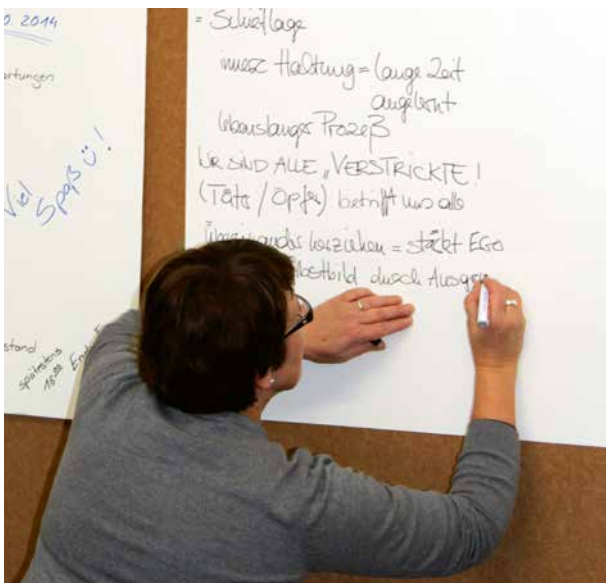 0. 2014
artungen
Viel
Spaß Ü!
stand
spätestens
18:00
= Schieflage
innere Haltung = lange Zeit
angelernt
lebenslanger Prozeß
WIR SIND ALLE „VERSTRICKTE!
(Täter/Opfer) betrifft uns alle
übereinander herziehen = stärkt EGO
lbstbild durch Ausgr